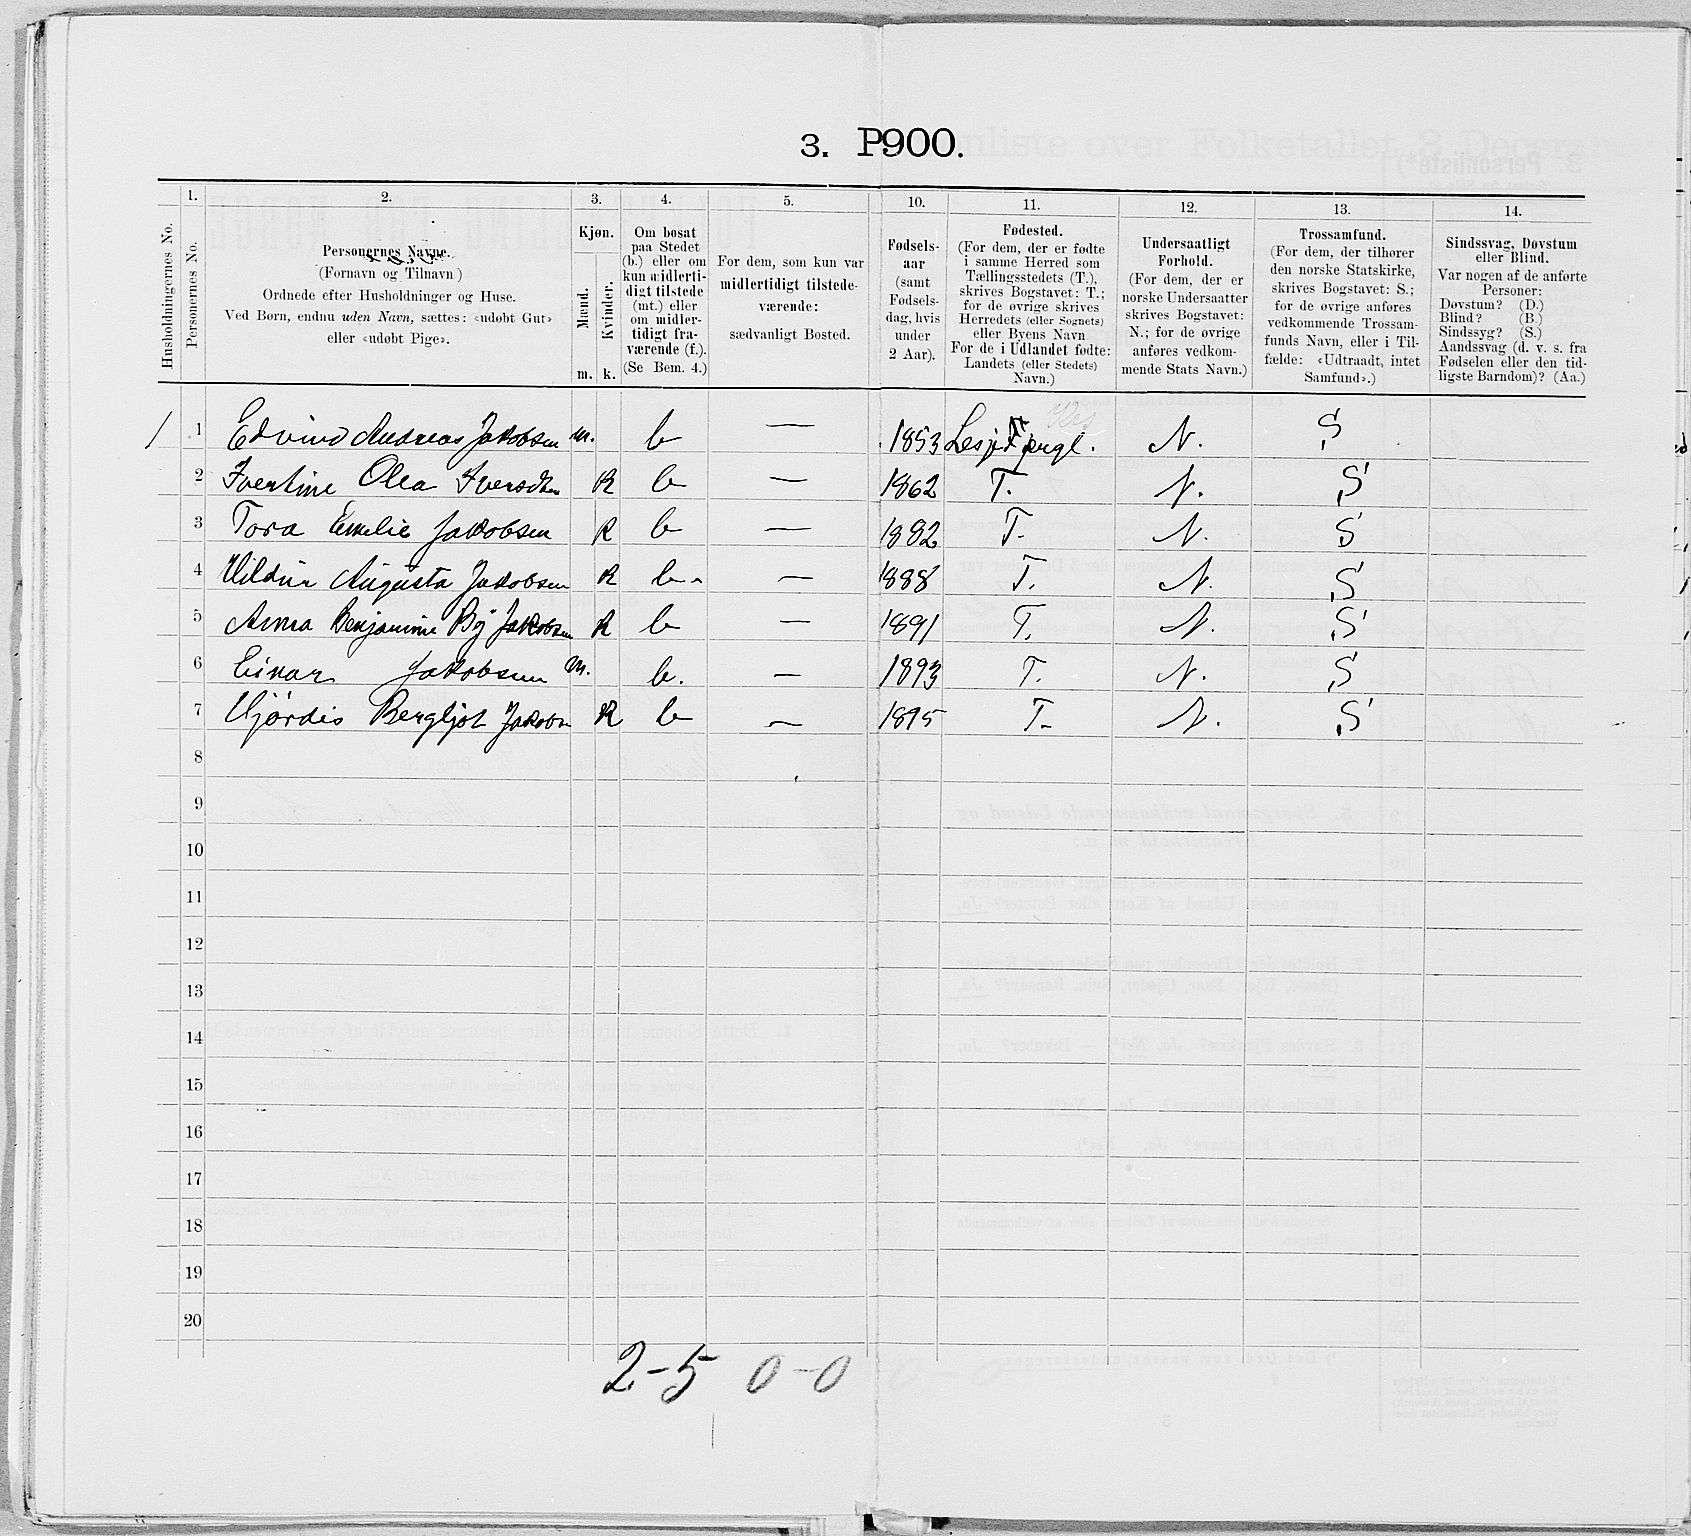 3. P900.
1. 2. 3. 4. 5. 10. 11. 12. 13. 14.
Husholdningernes No.
Personernes No.
Personernes Navne.
(Fornavn og Tilnavn)
Ordnede efter Husholdninger og Huse.
Ved Børn, endnu uden Navn, sættes: «udøbt Gut»
eller «udøbt Pige».
Kjøn.
Mænd.
Kvinder.
m. k.
Om bosat
paa Stedet
(b.) eller om
kun midlerti-
digt tilstede
(mt.) eller
om midler-
tidigt fra-
værende (f.).
(Se Bem. 4.)
For dem, som kun var
midlertidigt tilstede-
værende:
sædvanligt Bosted.
Fødsels-
aar
(samt
Fødsels-
dag, hvis
under
2 Aar).
Fødested.
(For dem, der er fødte
i samme Herred som
Tællingsstedets (T.),
skrives Bogstavet: T.;
for de øvrige skrives
Herredets (eller Sognets)
eller Byens Navn
For de i Udlandet fødte:
Landets (eller Stedets)
Navn.)
Undersaatligt
Forhold.
(For dem, der er
norske Undersaatter
skrives Bogstavet:
N.; for de øvrige
anføres vedkom-
mende Stats Navn.)
Trossamfund.
(For dem, der tilhører
den norske Statskirke,
skrives Bogstavet: S.;
for de øvrige anføres
vedkommende Trossam-
funds Navn, eller i Til-
fælde: «Udtraadt, intet
Samfund».)
Sindssvag, Døvstum
eller Blind.
Var nogen af de anførte
Personer:
Døvstum? (D.)
Blind? (B.)
Sindssyg? (S.)
Aandssvag (d. v. s. fra
Fødselen eller den tid-
ligste Barndom)? (Aa.)
1 1 Edvind Andreas Jakobsen m. b — 1853 N. S
2 Ivertine Olea Iversdtr K b — 1862 T. N. S
3 Tora Emelie Jakobsen K b — 1882 T. N. S
4 Hildur Augusta Jakobsen K b. — 1888 T. N. S
5 Anna Benjamine By Jakobsen K b — 1891 T. N. S
6 Einar Jakobsen m. b. — 1893 T. N. S
7 Hjørdis Bergljot Jakobs K b — 1895 T. N. S
8
9
10
11
12
13
14
15
16
17
18
19
20
2-5 0-0